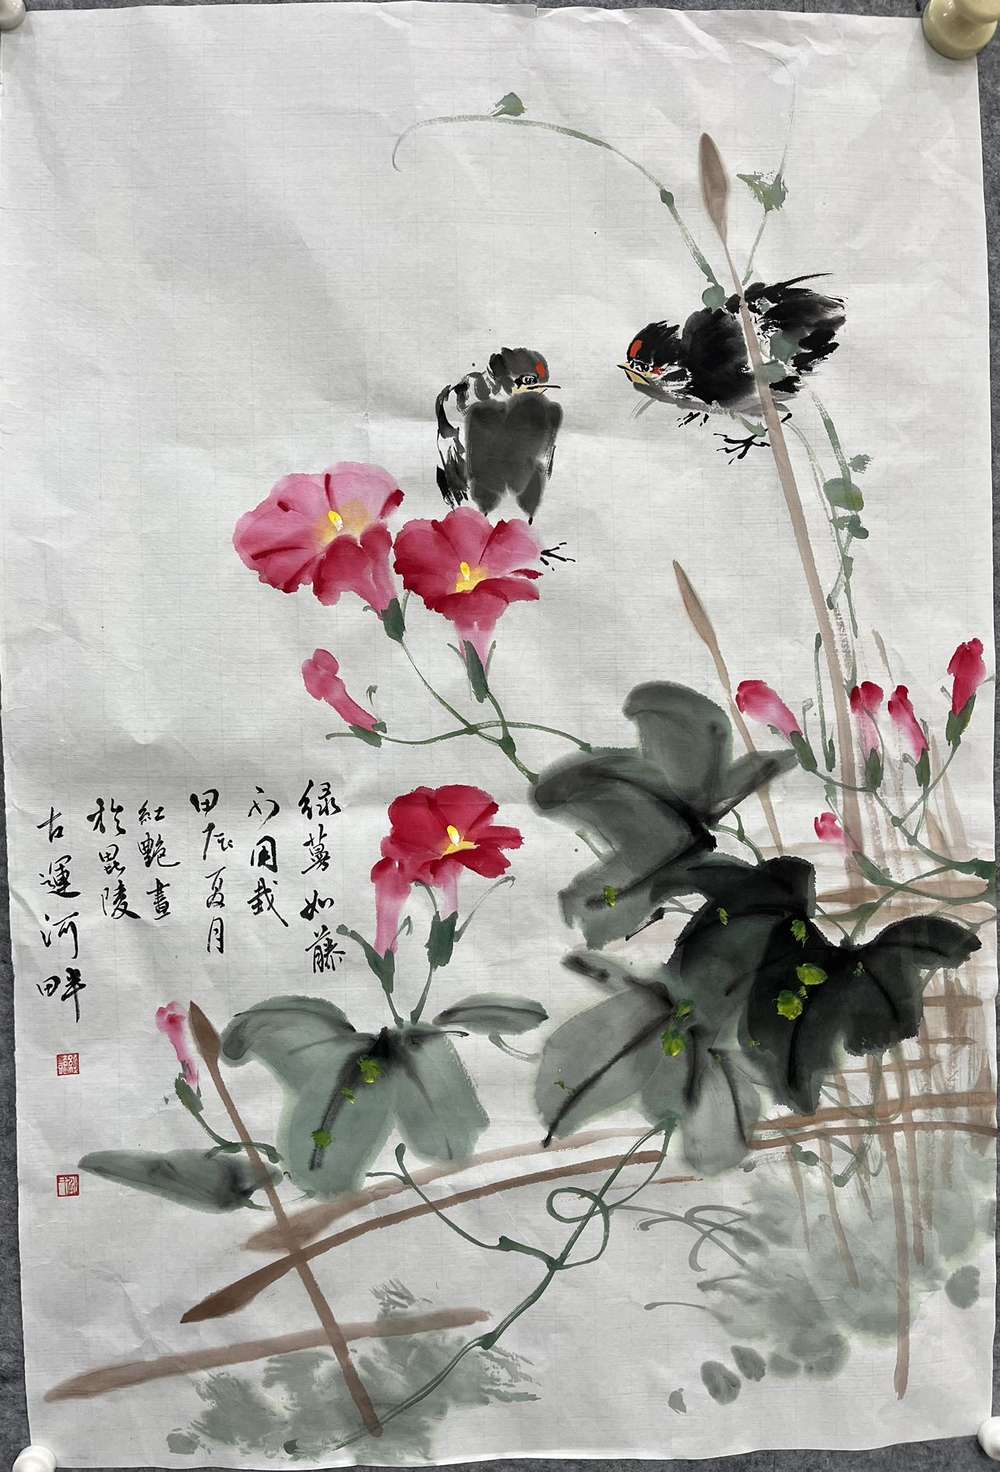 绿蔓如藤
不用栽
甲辰夏月
红艳畫
於毘陵
古運河畔